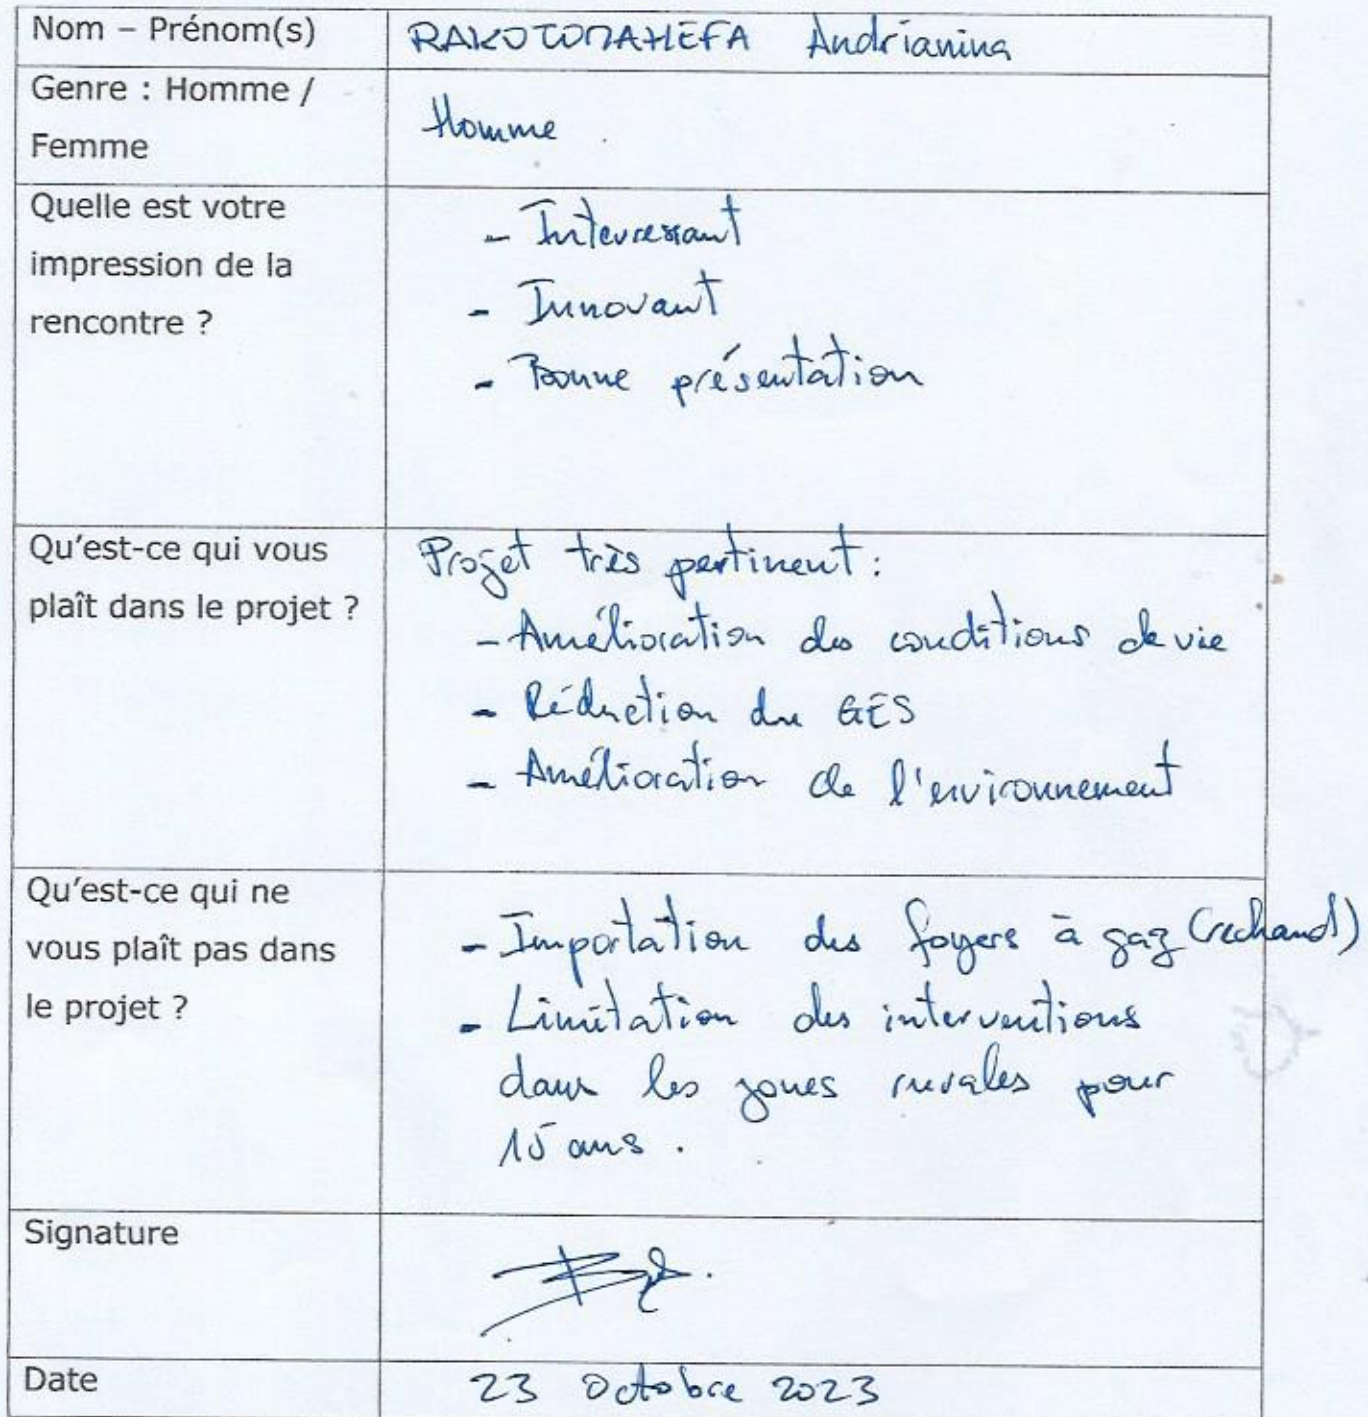 Nom – Prénom(s)
RAKOTOMAHEFA Andrianina
Genre : Homme /
Femme
Homme.
Quelle est votre
impression de la
rencontre ?
- Interressant
- Innovant
- Bonne présentation
Qu'est-ce qui vous
plaît dans le projet ?
Projet très pertinent :
- Amélioration des conditions de vie
- Réduction du GES
- Amélioration de l'environnement
Qu'est-ce qui ne
vous plaît pas dans
le projet ?
- Importation des foyers à gaz (rechaud)
- Limitation des interventions
dans les zones rurales pour
15 ans.
Signature
Date
23 Octobre 2023